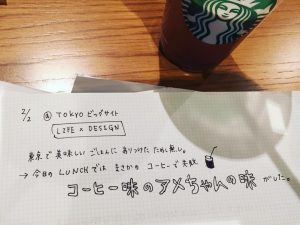 2/2 @ TOKYO ビッグサイト
LIFE × DESIGN
東京で美味しいごはんにありつけたためし無し。
→ 今日の LUNCH では まさかの コーヒーで失敗
コーヒー味のアメちゃんの味 がした。